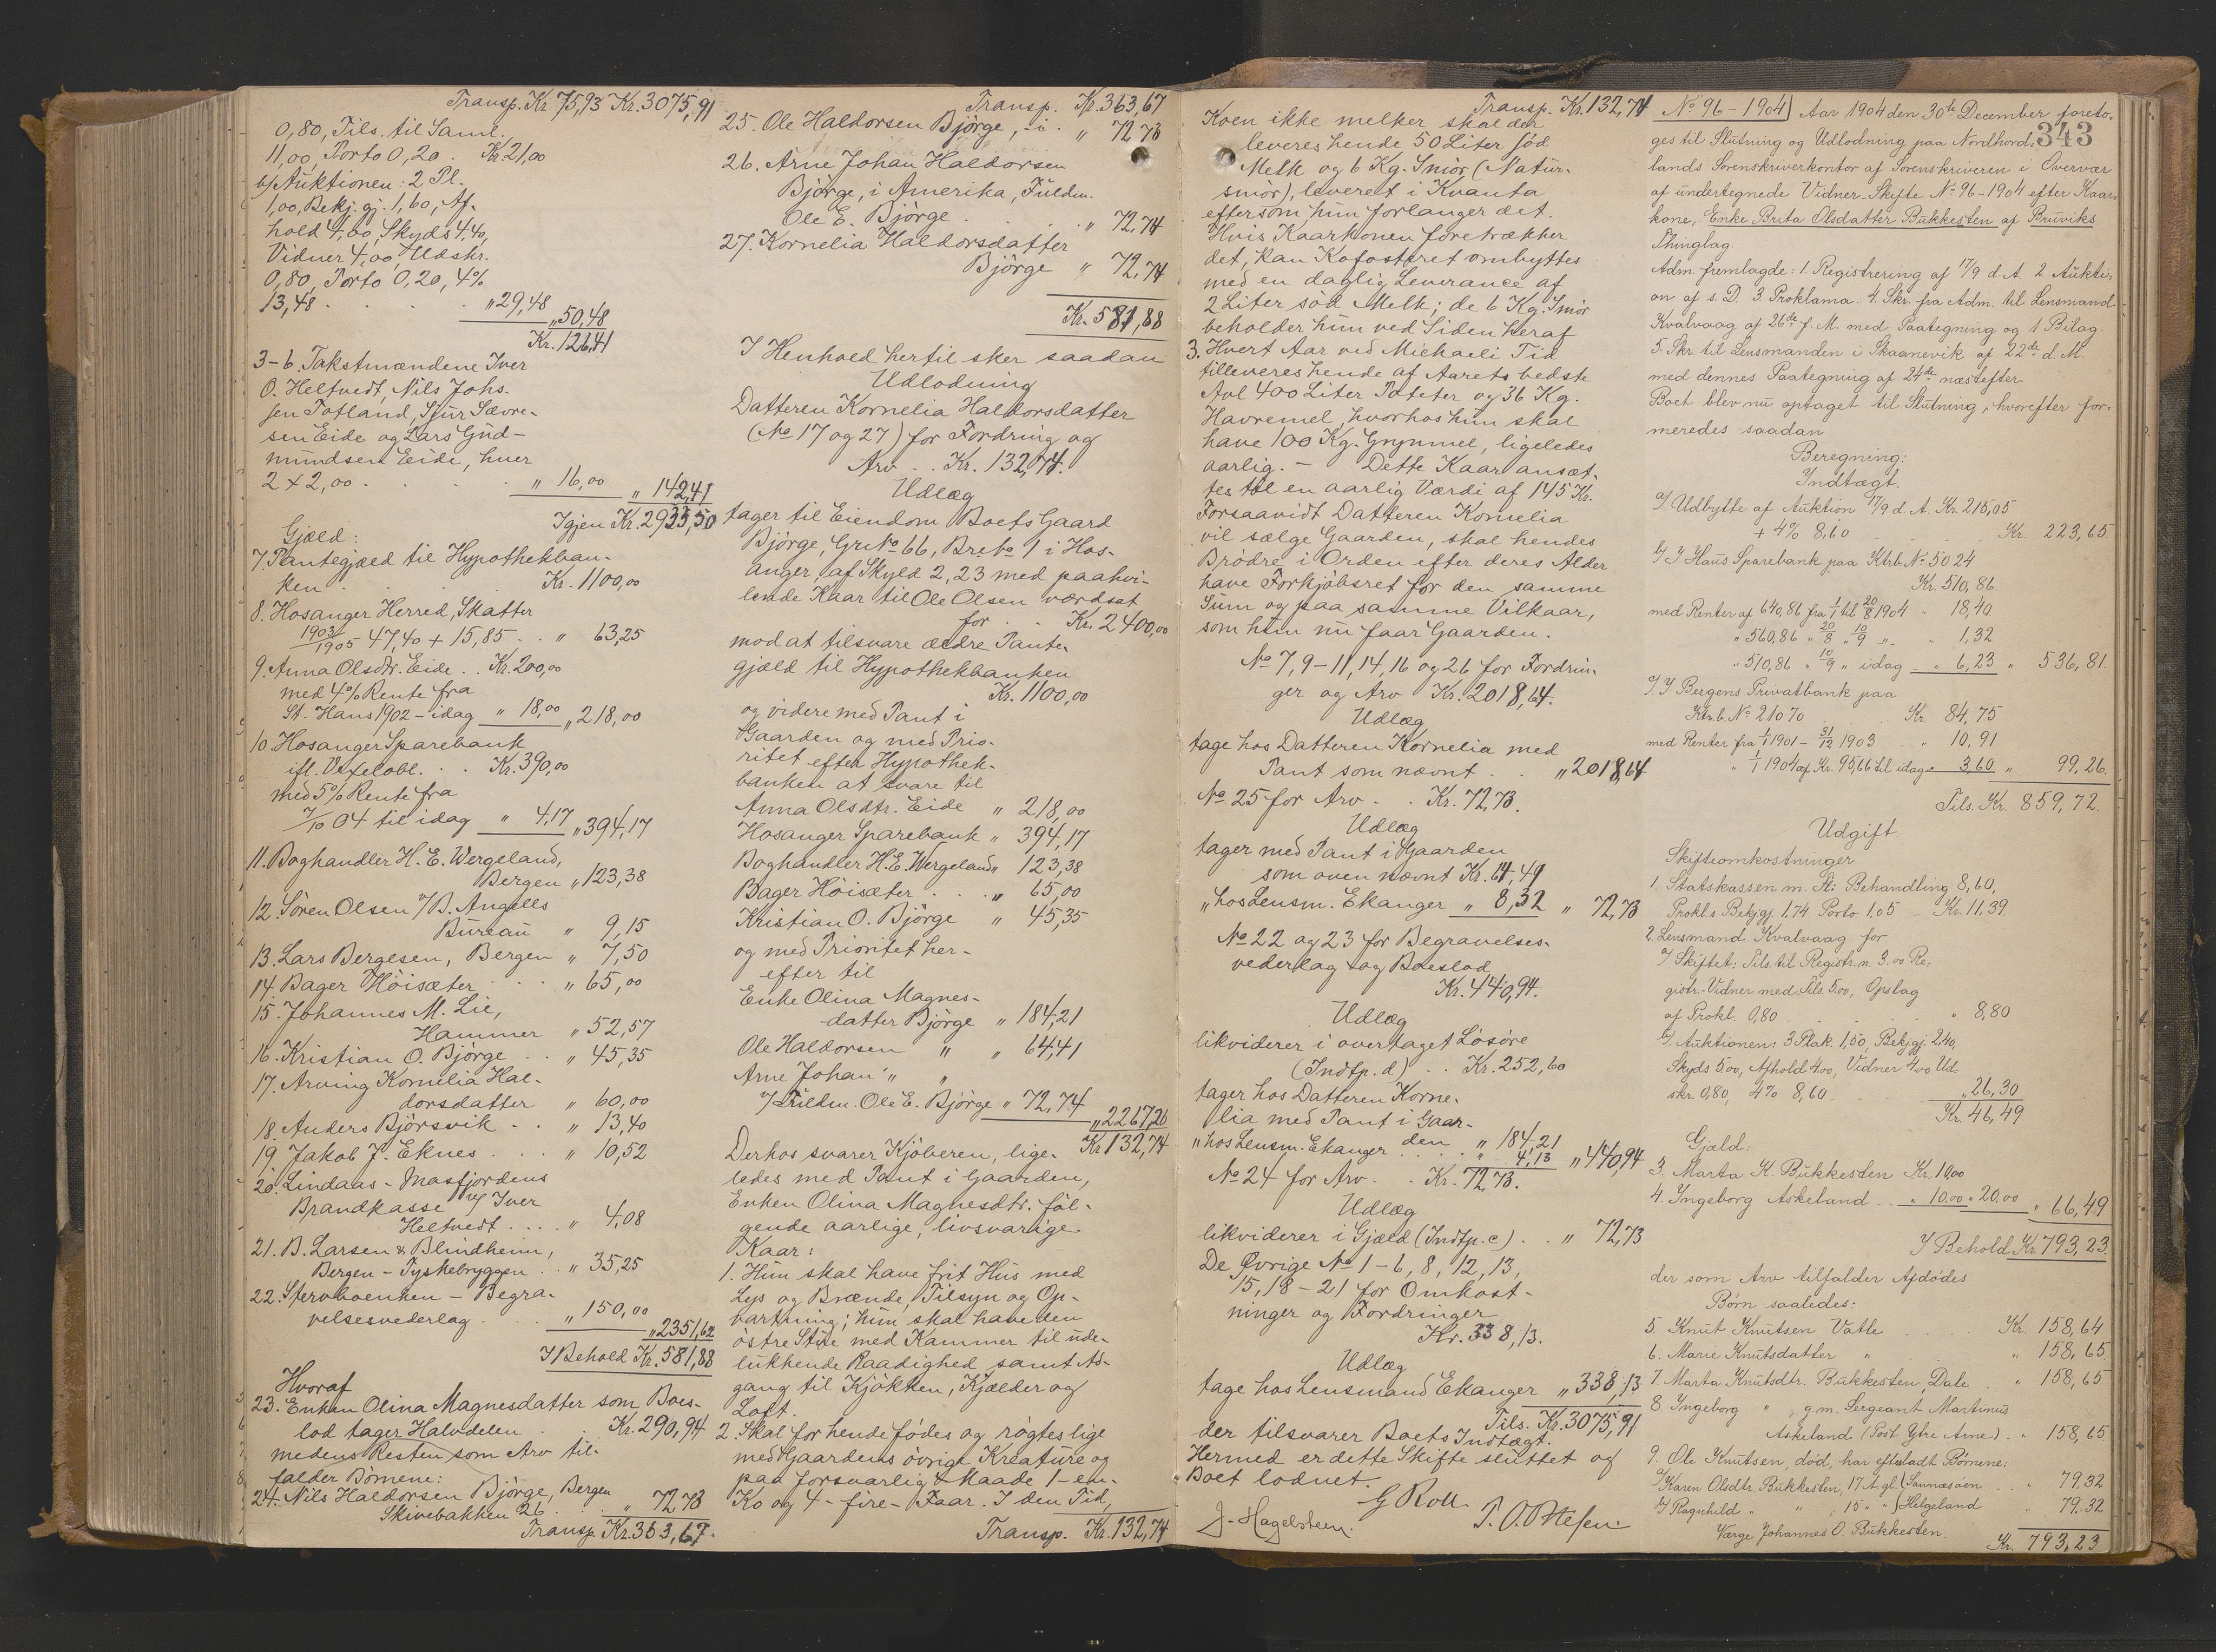 Transp. Kr 75,93 Kr. 3075,91
0,80, Tils. til Saml.
11,00, Porto 0,20. Kr. 21,00
b/ Auktionen: 2 Pl.
1,00, Bekj. gj. 1,60, Af-
hold 4,00, Skyds 4,40,
Vidner 4,00, Udskr.
0,80, Porto 0,20, 4%
13,48 . . . „ 29,48 „ 50,48
Kr. 126,41
3-6. Takstmændene Iver
O. Heltvedt, Nils Johs.
sen Totland, Sjur Sævre-
sen Eide og Lars Gud-
mundsen Eide, hver
2 x 2,00 . . . „ 16,00 „ 142,41
Igjen Kr. 2933,50
Gjæld:
7. Pantegjæld til Hypothekban-
ken . . . Kr. 1100,00
8. Hosanger Herred, Skatter
1903/1905 47,40 + 15,85 . . „ 63,25
9. Anna Olsdtr. Eide . . Kr. 200,00
med 4% Rente fra
St. Hans 1902 - idag „ 18,00 „ 218,00
10. Hosanger Sparebank
ifl. Vexelobl. . . Kr. 390,00
med 5% Rente fra
7/10 04 til idag „ 4,17 „ 394,17
11. Boghandler H. E. Wergeland,
Bergen „ 123,38
12. Sören Olsen v/ B. Angells
Bureau „ 9,15
13. Lars Bergesen, Bergen „ 7,50
14. Bager Höisæter . . . „ 65,00
15. Johannes M. Lie,
Hammer „ 52,57
16. Kristian O. Bjørge . . „ 45,35
17. Arving Kornelia Hal-
dorsdatter „ 60,00
18. Anders Bjørsvik . . „ 13,40
19. Jakob J. Eknes . . . „ 10,52
20. Lindaas-Masfjordens
Brandkasse v/ Iver
Heltvedt . . . . „ 4,08
21. B. Larsen & Blindheim,
Bergen - Tyskebryggen . . „ 35,25
22. Stervboenken - Begra-
velsesvederlag . . . „ 150,00 „ 2351,62
I Behold Kr. 581,88
Hvoraf
23. Enken Olina Magnesdatter som Boes-
lod tager Halvdelen . Kr. 290,94
medens Resten som Arv til-
falder Börnene:
24. Nils Haldorsen Bjørge, Bergen
Skivebakken 26 . . „ 72,73
Transp. Kr. 363,67.
Transp. Kr. 363,67
25. Ole Haldorsen Bjørge, i . „ 72,73
26. Arne Johan Haldorsen
Bjørge, i Amerika, Fuldm.
Ole E. Bjørge . . . . „ 72,74
27. Kornelia Haldorsdatter
Bjørge „ 72,74
Kr. 581,88
I Henhold hertil sker saadan
Udlodning
Datteren Kornelia Haldorsdatter
(No 17 og 27) for Fordring og
Arv . . Kr. 132,74.
Udlæg
tager til Eiendom Boets Gaard
Bjørge, Gr. No 66, Br. No 1 i Hos-
anger, af Skyld 2,23 med paahvi-
lende Kaar til Ole Olsen værdsat
for . . Kr. 2400,00
mod at tilsvare ældre Pante-
gjæld til Hypothekbanken
Kr. 1100,00
og videre med Pant i
Gaarden og med Prio-
ritet efter Hypothek-
banken at svare til
Anna Olsdtr. Eide „ 218,00
Hosanger Sparebank „ 394,17
Boghandler H. E. Wergeland „ 123,38
Bager Höisæter . . . „ 65,00
Kristian O. Bjørge „ 45,35
og med Prioritet her-
efter til
Enke Olina Magnes-
datter Bjørge „ 184,21
Ole Haldorsen „ „ 64,41
Arne Johan „ „
v/ Fuldm. Ole E. Bjørge „ 72,74 „ 2267,26
Kr 132,74
Derhos svarer Kjøberen, lige-
ledes med Pant i Gaarden,
Enken Olina Magnesdtr. føl-
gende aarlige, livsvarige
Kaar:
1. Hun skal have frit Hus med
Lys og Brænde, Tilsyn og Op-
vartning; hun skal have den
östre Stue med Kammer til ude-
lukkende Raadighed samt Ad-
gang til Kjökken, Kjælder og
Loft.
2. Skal for hende födes og rögtes lige
med Gaardens övrige Kreature og
paa forsvarlig Maade 1-en-
Ko og 4-fire-Faar. I den Tid,
Transp. Kr. 132,74
Transp. Kr. 132,74
Koen ikke melker skal der
leveres hende 50 Liter söd
Melk og 6 Kg. Smör (Natur-
smör), leveret i Kvanta
eftersom hun forlanger det.
Hvis Kaarkonen foretrækker
det, kan Kofosteret ombyttes
med en daglig Leverance af
2 Liter söd Melk; de 6 Kg. Smör
beholder hun ved Siden heraf
3. Hvert Aar ved Michaeli Tid
tilleveres hende af Aarets bedste
Avl 400 Liter Poteter og 36 Kg.
Havremel, hvorhos hun skal
have 100 Kg. Grynmel, ligeledes
aarlig. - Dette Kaar ansæt-
tes til en aarlig Værdi af 145 Kr.
Forsaavidt Datteren Kornelia
vil sælge Gaarden, skal hendes
Brödre i Orden efter deres Alder
have Forkjöbsret for den samme
Sum og paa samme Vilkaar,
som hun nu faar Gaarden.
No 7, 9-11, 14, 16 og 26 for Fordrin-
ger og Arv Kr. 2018,64.
Udlæg
tage hos Datteren Kornelia med
Pant som nævnt . . „ 2018,64
No. 25 for Arv . . Kr. 72,73.
Udlæg
tager med Pant i Gaarden
som oven nævnt Kr. 64,41
„ hos Lensm. Ekanger „ 8,32 „ 72,73
No 22 og 23 for Begravelses-
vederlag og Boeslod
Kr. 440,94.
Udlæg
likviderer i overtaget Lösöre
(Indtp. d) . . Kr. 252,60
tager hos Datteren Korne-
lia med Pant i Gaar-
den „ 184,21
„ hos Lensm. Ekanger . . . „ 4,13 „ 440,94
No 24 for Arv . . Kr. 72,73.
Udlæg
likviderer i Gjæld (Indtp. c) . . „ 72,73
De Øvrige No 1-6, 8, 12, 13,
15, 18-21 for Omkost-
ninger og Fordringer
Kr. 338,13.
Udlæg
tage hos Lensmand Ekanger „ 338,13
Tils. Kr. 3075,91
der tilsvarer Boets Indtægt.
Hermed er dette Skifte sluttet og
Boet lodnet.
G Roll
J. Hagelsteen.
343
No 96 - 1904 Aar 1904 den 30te December foreto-
ges til Slutning og Udlodning paa Nordhord-
lands Sorenskriverkontor af Sorenskriveren i Overvær
af undertegnede Vidner Skifte No 96-1904 efter Kaar-
kone, Enke Brita Olsdatter Bukkesten af Bruviks
Thinglag.
Adm. fremlagde: 1. Registrering af 17/9 d. A. 2. Aukti-
on af s. D. 3. Proklama. 4. Skr. fra Adm. til Lensmand
Kvalvaag af 26de f. M. med Paategning og 1 Bilag.
5. Skr. til Lensmanden i Skaanevik af 22de d. M.
med dennes Paategning af 24de næstefter.
Boet blev nu optaget til Slutning, hvorefter for-
meredes saadan
Beregning:
Indtægt.
a/ Udbytte af Auktion 17/9 d. A. Kr. 215,05
+ 4% 8,60 Kr. 223,65.
b/ I Haus Sparebank paa Ktrb. No 5024
Kr. 510,86
med Renter af 640,86 fra 1/1 til 20/8 1904 „ 18,40
„ 560,86 „ 20/8 „ 10/9 „ „ 1,32
„ 510,86 „ 10/9 „ idag „ 6,23 „ 536,81.
c/ I Bergens Privatbank paa
Ktrb. No 21070 . . Kr. 84,75
med Renter fra 1/1 1901 - 31/12 1903 „ 10,91
„ 1/1 1904 af Kr. 95,66 til idag „ 3,60 „ 99,26.
Tils. Kr. 859,72.
Udgift.
Skifteomkostninger
1. Statskassen m. St: Behandling 8,60,
Prokl.s Bekjgj. 1,74 Porto 1,05 . Kr. 11,39.
2. Lensmand Kvalvaag for
a/ Skiftet: Tils. til Registr. n. 3.00 Re-
gistr.-Vidner med Tils. 5.00, Opslag
af Prokl. 0,80 . . . „ 8,80
b/ Auktionen: 3 Plak. 1,50, Bekjgj. 2,40,
Skyds 5,00, Afhold 4,00, Vidner 4,00 Ud-
skr. 0,80, 4% 8,60 . . . „ 26,30
Kr. 46,49
Gjæld:
3. Marta K. Bukkesten Kr. 10,00
4. Ingeborg Askeland . . „ 10.00 „ 20,00 „ 66,49
I Behold Kr. 793,23.
der som Arv tilfalder Afdödes
Børn saaledes:
5. Knut Knutsen Vatle Kr. 158,64
6. Marie Knutsdatter „ „ 158,65
7. Marta Knutsdtr. Bukkesten, Dale . „ 158,65
8. Ingeborg „ , g. m. Sergeant Martinus
Askeland (Post Ytre Arne) . „ 158,65
9. Ole Knutsen, död, har efterladt Börnene:
a/ Karen Olsdtr. Bukkesten, 17 A. gl. (Sannæsöen . . „ 79,32
b/ Ragnhild „ „ , 15 „ „ (Helgeland „ 79,32
Værge Johannes O. Bukkesten.
Kr. 793,23